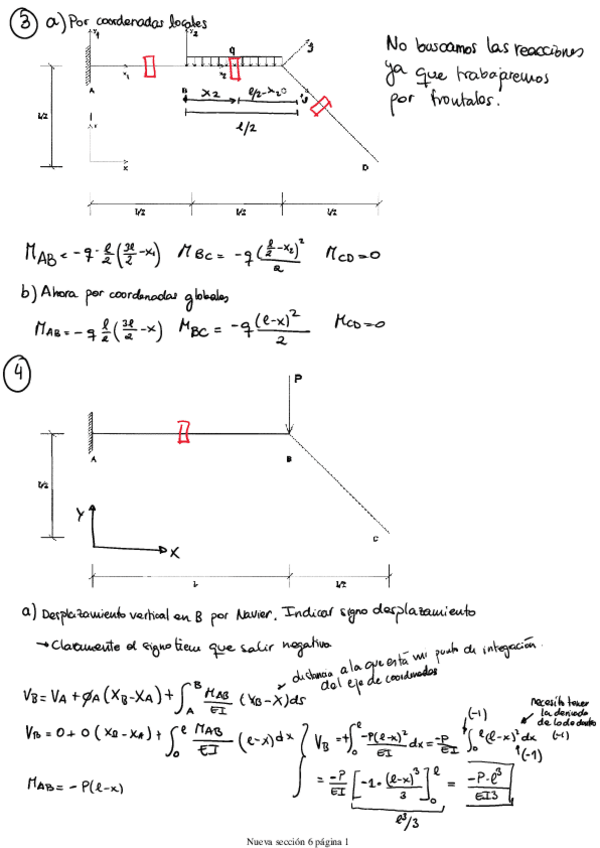 3 a) Por coordenadas locales
No buscamos las reacciones
ya que trabajaremos
por frontales.
y1
y2
q
x1
x2
A
B
D
x2
l/2-x2
l/2
l/2
x
l/2
l/2
l/2
M_AB = -q·l/2(3l/4-x1) M_BC = -q(l/2-x2)²/2 M_CD=0
b) Ahora por coordenadas globales
M_AB = -q l/2(3l/4-x) M_BC = -q(l-x)²/2 M_CD=0
4
P
A
B
l/2
C
Y
X
L
l/2
a) Desplazamiento vertical en B por Navier. Indicar signo desplazamiento
→ Claramente el signo tiene que salir negativo
distancia a la que está mi punto de integración
del eje de coordenadas
V_B = V_A + ϕ_A(X_B-X_A) + ∫_A^B M_AB/EI (X_B-X)ds
necesito tener
la derivada
de lo de dentro
(-1)
V_B = 0 + 0(X_B-X_A) + ∫_0^l M_AB/EI (l-x)dx
V_B = +∫_0^l -P(l-x)²/EI dx = -P/EI ∫_0^l (l-x)² dx
(-1)
(-1)
M_AB = -P(l-x)
= -P/EI [-1·(l-x)³/3]_0^l = -P·l³/EI3
l³/3
Nueva sección 6 página 1